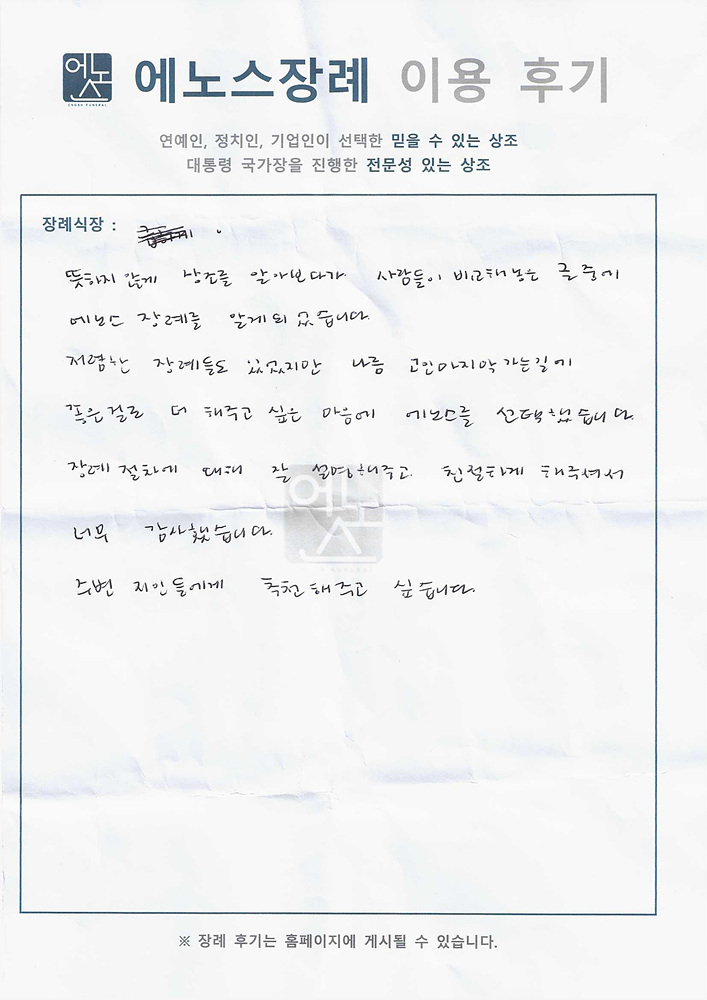 에노스장례 이용 후기
연예인, 정치인, 기업인이 선택한 믿을 수 있는 상조
대통령 국가장을 진행한 전문성 있는 상조
장례식장 :
뜻하지 않게 상조를 알아보다가 사람들이 비교해놓은 글 중에
에노스 장례를 알게되었습니다.
저렴한 장례들도 있었지만 나름 고인마지막가는길에
좋은걸로 더 해주고 싶은 마음에 에노스를 선택했습니다.
장례 절차에 대해 잘 설명해주고 친절하게 해주셔서
너무 감사했습니다.
주변 지인들에게 추천해주고 싶습니다.
※ 장례 후기는 홈페이지에 게시될 수 있습니다.